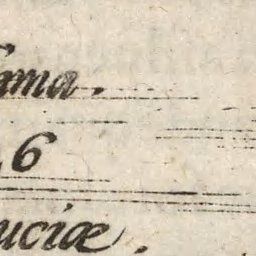 ma.
6
uciæ.